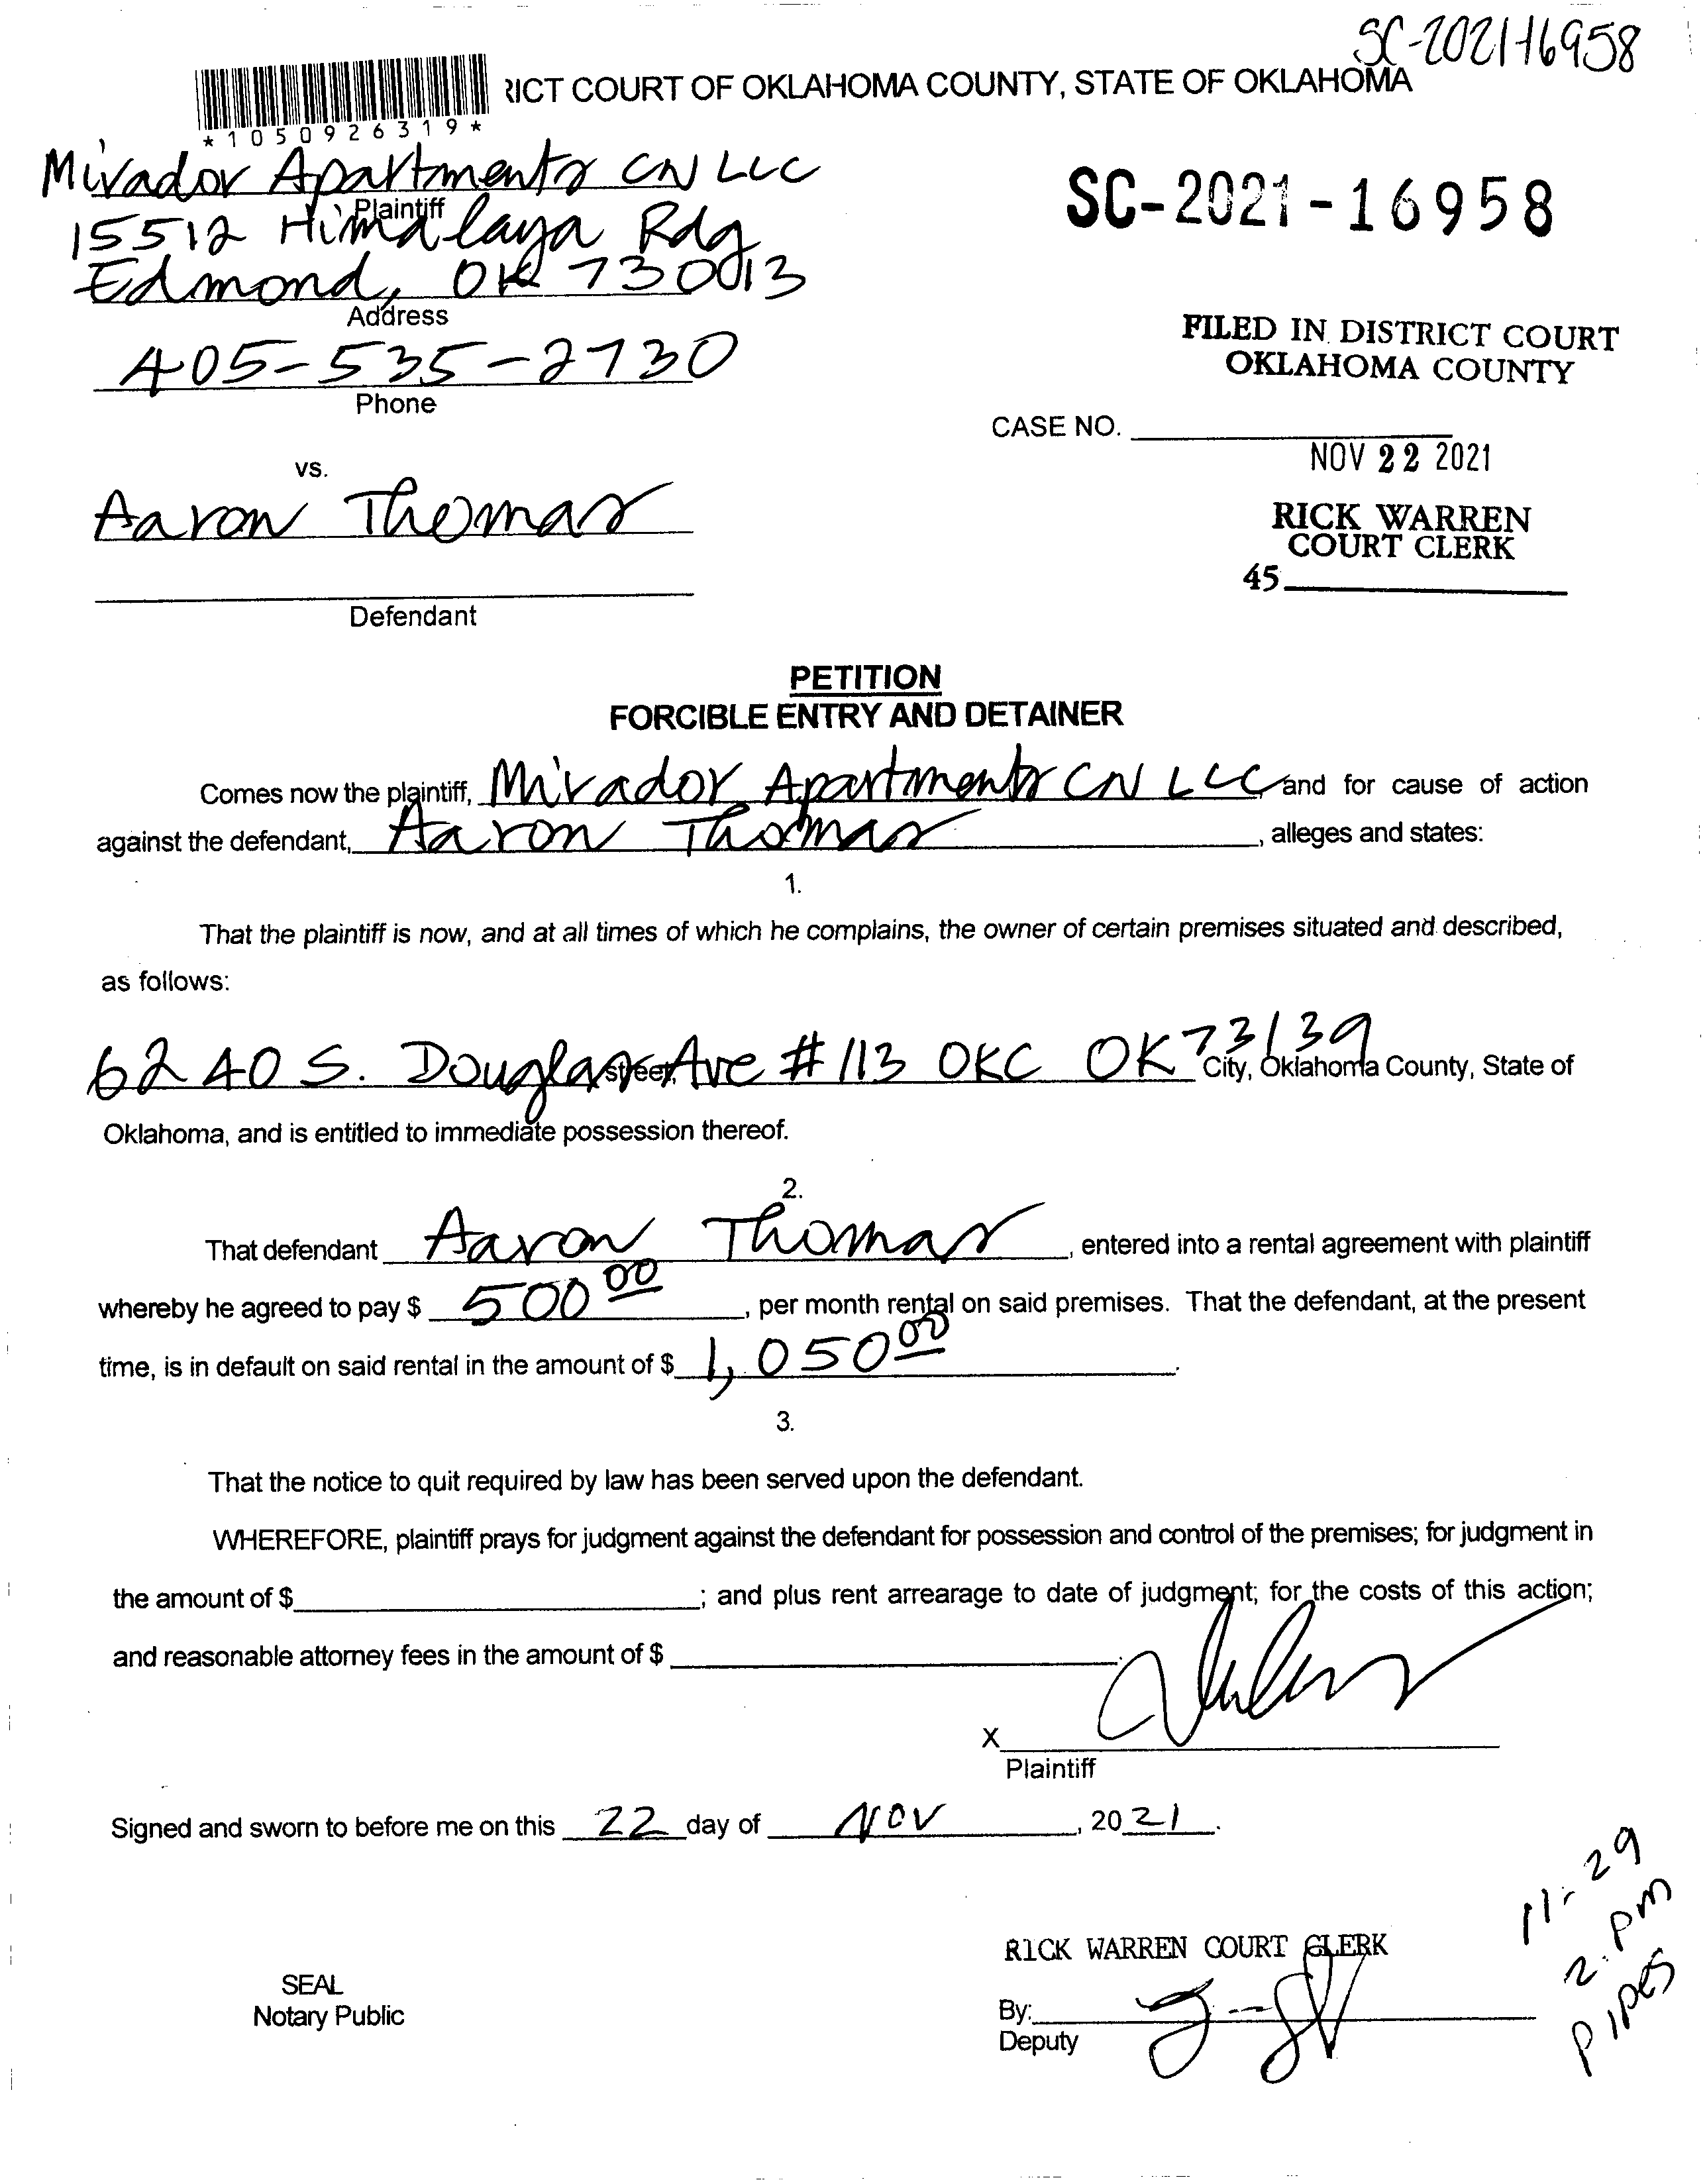 SC-2021-16958
RICT COURT OF OKLAHOMA COUNTY, STATE OF OKLAHOMA
*1050926319*
Mirador Apartments CN LLC
Plaintiff
SC-2021-16958
15512 Himalaya Rdg
Edmond, OK 73013
Address
FILED IN DISTRICT COURT
OKLAHOMA COUNTY
405-535-2730
Phone
CASE NO.
NOV 22 2021
vs.
Aaron Thomas
RICK WARREN
COURT CLERK
45
Defendant
PETITION
FORCIBLE ENTRY AND DETAINER
Comes now the plaintiff, Mirador Apartments CN LLC, and for cause of action
against the defendant, Aaron Thomas, alleges and states:
1.
That the plaintiff is now, and at all times of which he complains, the owner of certain premises situated and described,
as follows:
6240 S. Douglas Ave #113 OKC OK 73139 street, City, Oklahoma County, State of
Oklahoma, and is entitled to immediate possession thereof.
2.
That defendant Aaron Thomas, entered into a rental agreement with plaintiff
whereby he agreed to pay $ 500 00, per month rental on said premises. That the defendant, at the present
time, is in default on said rental in the amount of $ 1,050 00.
3.
That the notice to quit required by law has been served upon the defendant.
WHEREFORE, plaintiff prays for judgment against the defendant for possession and control of the premises; for judgment in
the amount of $; and plus rent arrearage to date of judgment; for the costs of this action;
and reasonable attorney fees in the amount of $.
X
Plaintiff
Signed and sworn to before me on this 22 day of NOV, 2021.
11-29
2: pm
PIPES
RICK WARREN COURT CLERK
SEAL
Notary Public
By:
Deputy